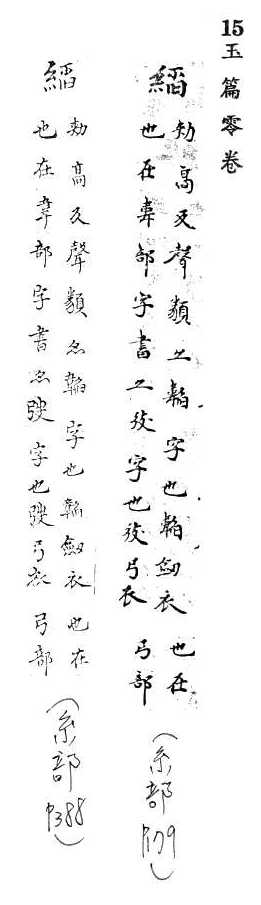 15玉篇零卷
縚
勑高反聲類亦韜字也韜劔衣也在
也在韋部字書亦弢字也弢弓衣弓部
(系部P179)
縚
勑高反聲類亦韜字也韜劔衣也在
也在韋部字書亦弢字也弢弓衣弓部
(系部P388)